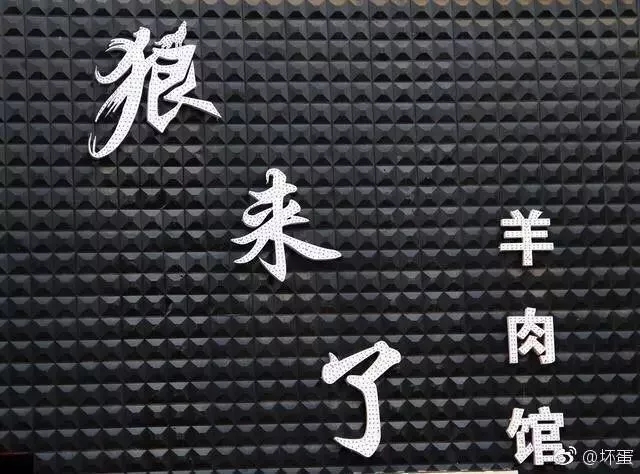 狼来了
羊肉馆
@坏蛋